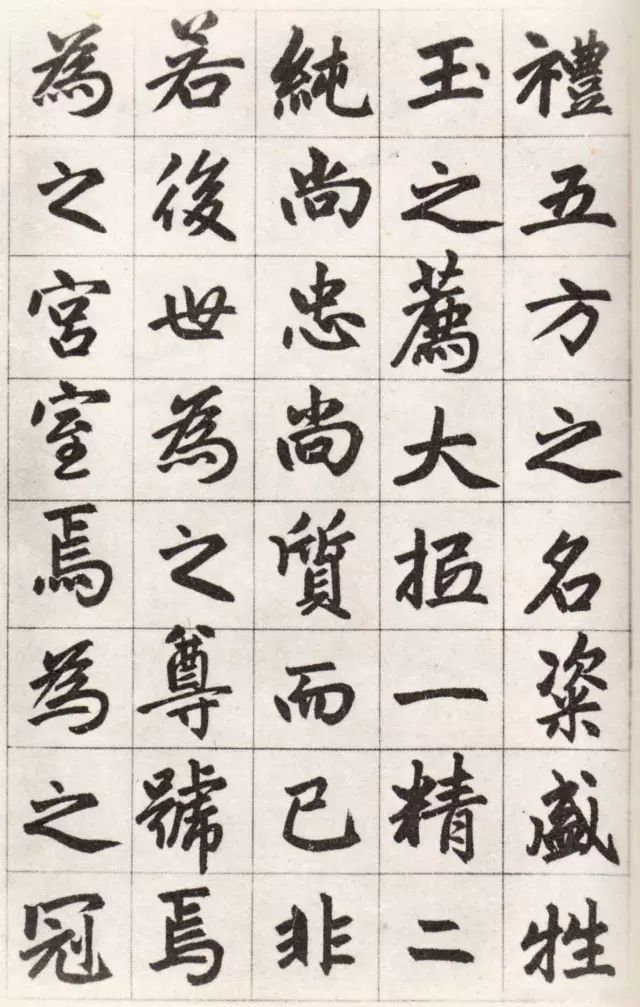 禮五方之名粢盛牲
玉之薦大抵一精二
純尚忠尚質而已非
若後世為之尊號焉
為之宮室焉為之冠